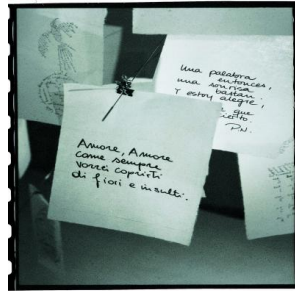 Una palabra
entonces,
una sonrisa
bastan
Y estoy alegre,
que
P.N.
Amore, Amore
come sempre
vorrei coprirti
di fiori e insulti.